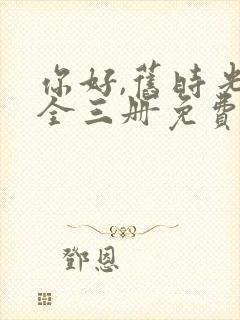 你好,舊時光
全三册免費
鄧恩